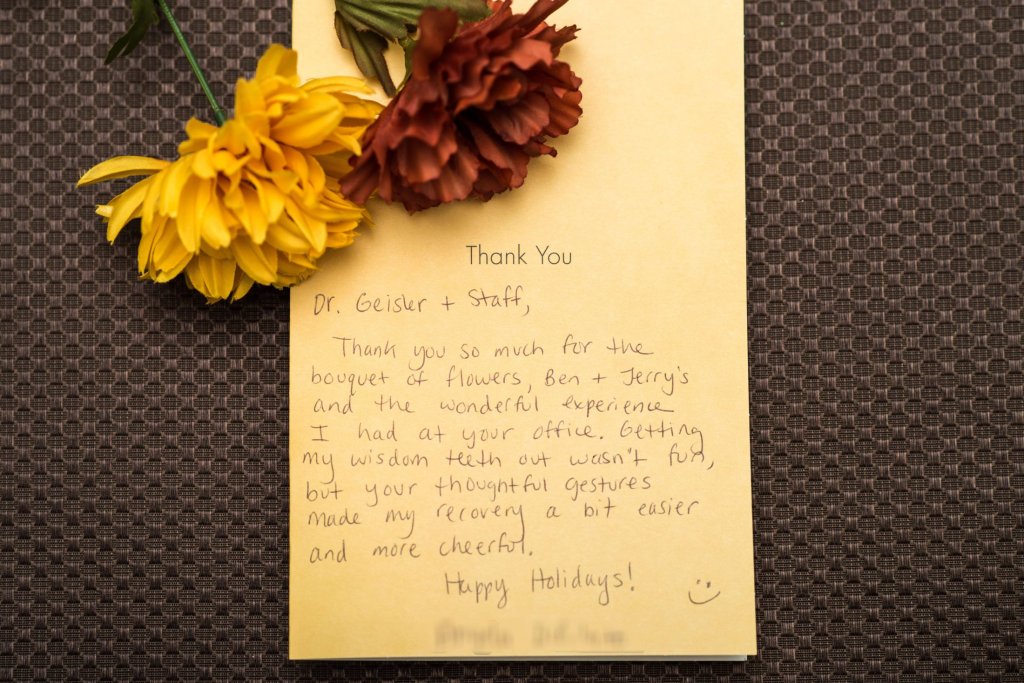 Thank You
Dr. Geisler + Staff,
Thank you so much for the
bouquet of flowers, Ben + Jerry's
and the wonderful experience
I had at your office. Getting
my wisdom teeth out wasn't fun,
but your thoughtful gestures
made my recovery a bit easier
and more cheerful.
Happy Holidays!